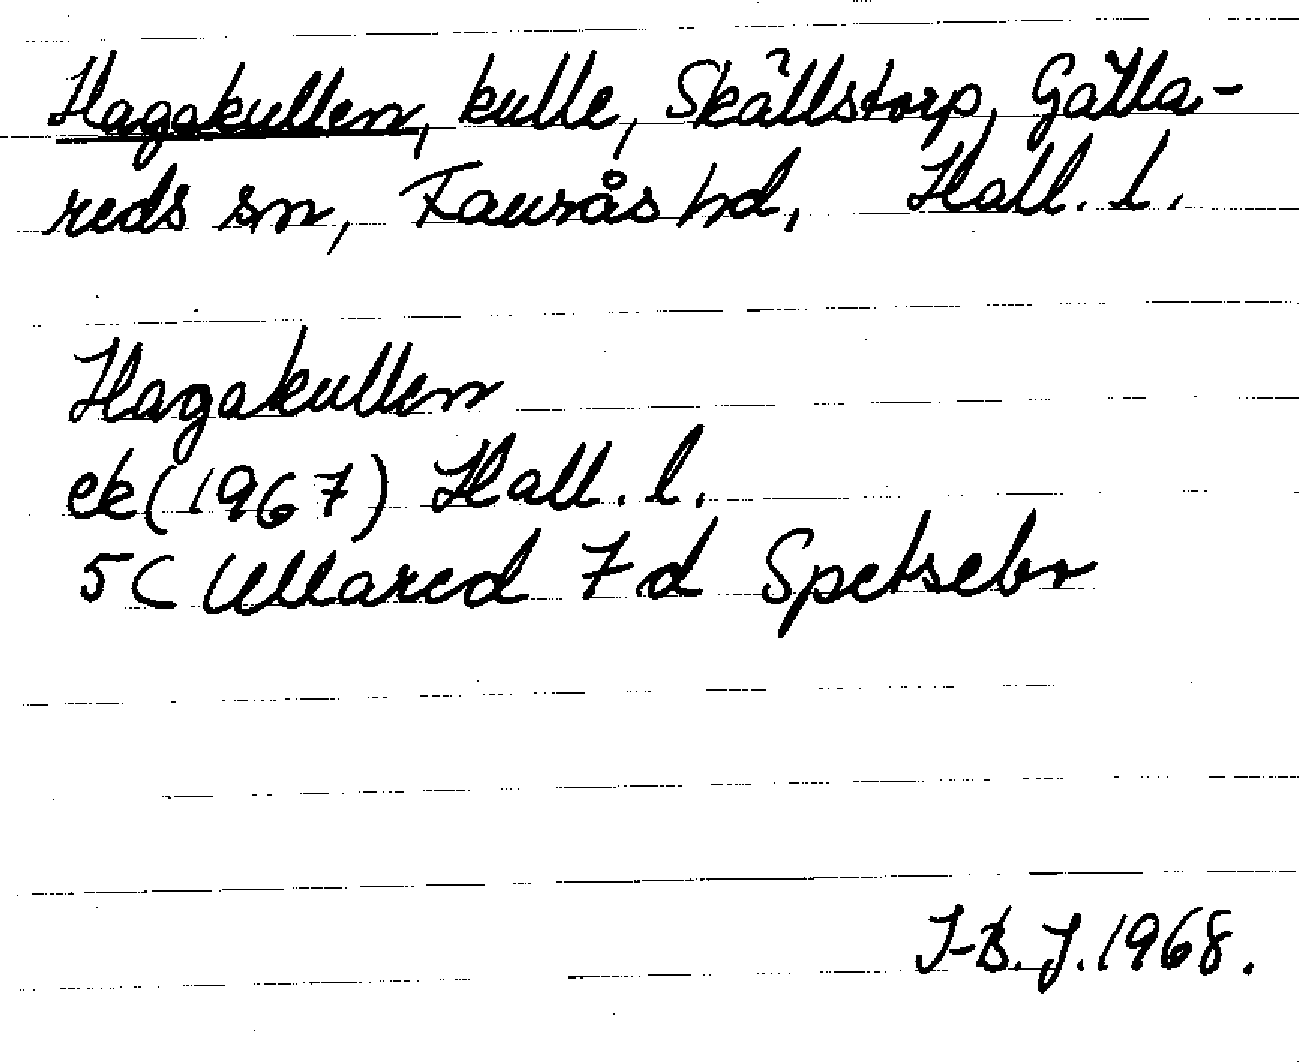 Hagakullen, kulle, Skällstorp, Gälla-
reds sn, Faurås hd, Hall. l.
Hagakullen
ek (1967) Hall. l.
5C Ullared 7d Spetsebo
J-B. J. 1968.